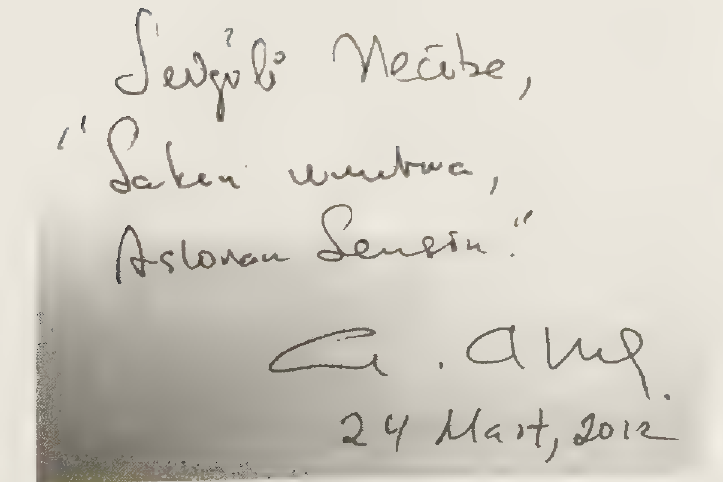 Sevgili Necibe,
"Sakın unutma,
Aslonan Sensin."
24 Mart, 2012